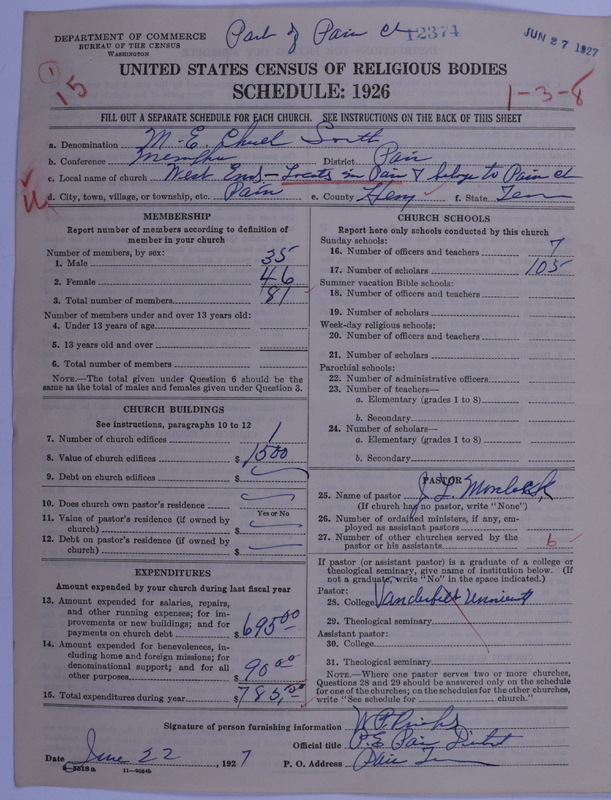 DEPARTMENT OF COMMERCE
BUREAU OF THE CENSUS
WASHINGTON
Part of Pain ch
12374
JUN 27 1927
UNITED STATES CENSUS OF RELIGIOUS BODIES
SCHEDULE: 1926
1
15
1-3-8
FILL OUT A SEPARATE SCHEDULE FOR EACH CHURCH. SEE INSTRUCTIONS ON THE BACK OF THIS SHEET
a. Denomination M. E. Church South
b. Conference Memphis District Paris
c. Local name of church West End - Locats in Paris & belongs to Paris ch
d. City, town, village, or township, etc. Paris e. County Henry f. State Tenn
MEMBERSHIP
Report number of members according to definition of member in your church
Number of members, by sex:
1. Male 35
2. Female 46
3. Total number of members 81
Number of members under and over 13 years old:
4. Under 13 years of age
5. 13 years old and over
6. Total number of members
NOTE.—The total given under Question 6 should be the same as the total of males and females given under Question 3.
CHURCH BUILDINGS
See instructions, paragraphs 10 to 12
7. Number of church edifices 1
8. Value of church edifices $ 1500
9. Debt on church edifices $
10. Does church own pastor's residence
Yes or No
11. Value of pastor's residence (if owned by church) $
12. Debt on pastor's residence (if owned by church) $
EXPENDITURES
Amount expended by your church during last fiscal year
13. Amount expended for salaries, repairs, and other running expenses; for improvements or new buildings; and for payments on church debt $ 695.00
14. Amount expended for benevolences, including home and foreign missions; for denominational support; and for all other purposes $ 90.00
15. Total expenditures during year $ 785.00
CHURCH SCHOOLS
Report here only schools conducted by this church
Sunday schools:
16. Number of officers and teachers 7
17. Number of scholars 105
Summer vacation Bible schools:
18. Number of officers and teachers
19. Number of scholars
Week-day religious schools:
20. Number of officers and teachers
21. Number of scholars
Parochial schools:
22. Number of administrative officers
23. Number of teachers—
a. Elementary (grades 1 to 8)
b. Secondary
24. Number of scholars—
a. Elementary (grades 1 to 8)
b. Secondary
PASTOR
25. Name of pastor J. L.
(If church has no pastor, write "None")
26. Number of ordained ministers, if any, employed as assistant pastors
27. Number of other churches served by the pastor or his assistants 6
If pastor (or assistant pastor) is a graduate of a college or theological seminary, give name of institution below. (If not a graduate, write "No" in the space indicated.)
Pastor:
28. College Vanderbilt University
29. Theological seminary
Assistant pastor:
30. College
31. Theological seminary
NOTE.—Where one pastor serves two or more churches, Questions 28 and 29 should be answered only on the schedule for one of the churches; on the schedules for the other churches, write "See schedule for church."
Signature of person furnishing information
Official title P. E. Paris District
Date June 22, 1927 P. O. Address Paris Tenn
11—9584b